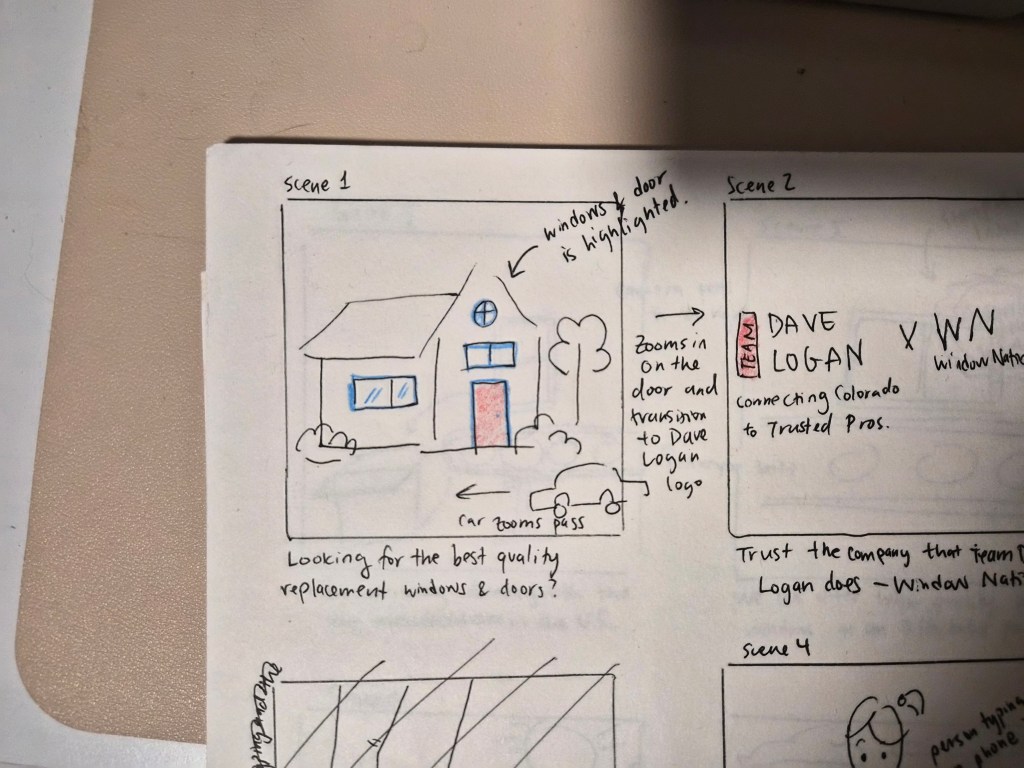 Scene 1
windows & door
is highlighted.
car zooms pass
Looking for the best quality
replacement windows & doors?
zooms in
on the
door and
transition
to Dave
Logan
logo
Scene 2
TEAM
DAVE
LOGAN
X WN
Connecting Colorado
to Trusted Pros.
Trust the company that Team
Logan does – Window
Scene 4
person typing
phone